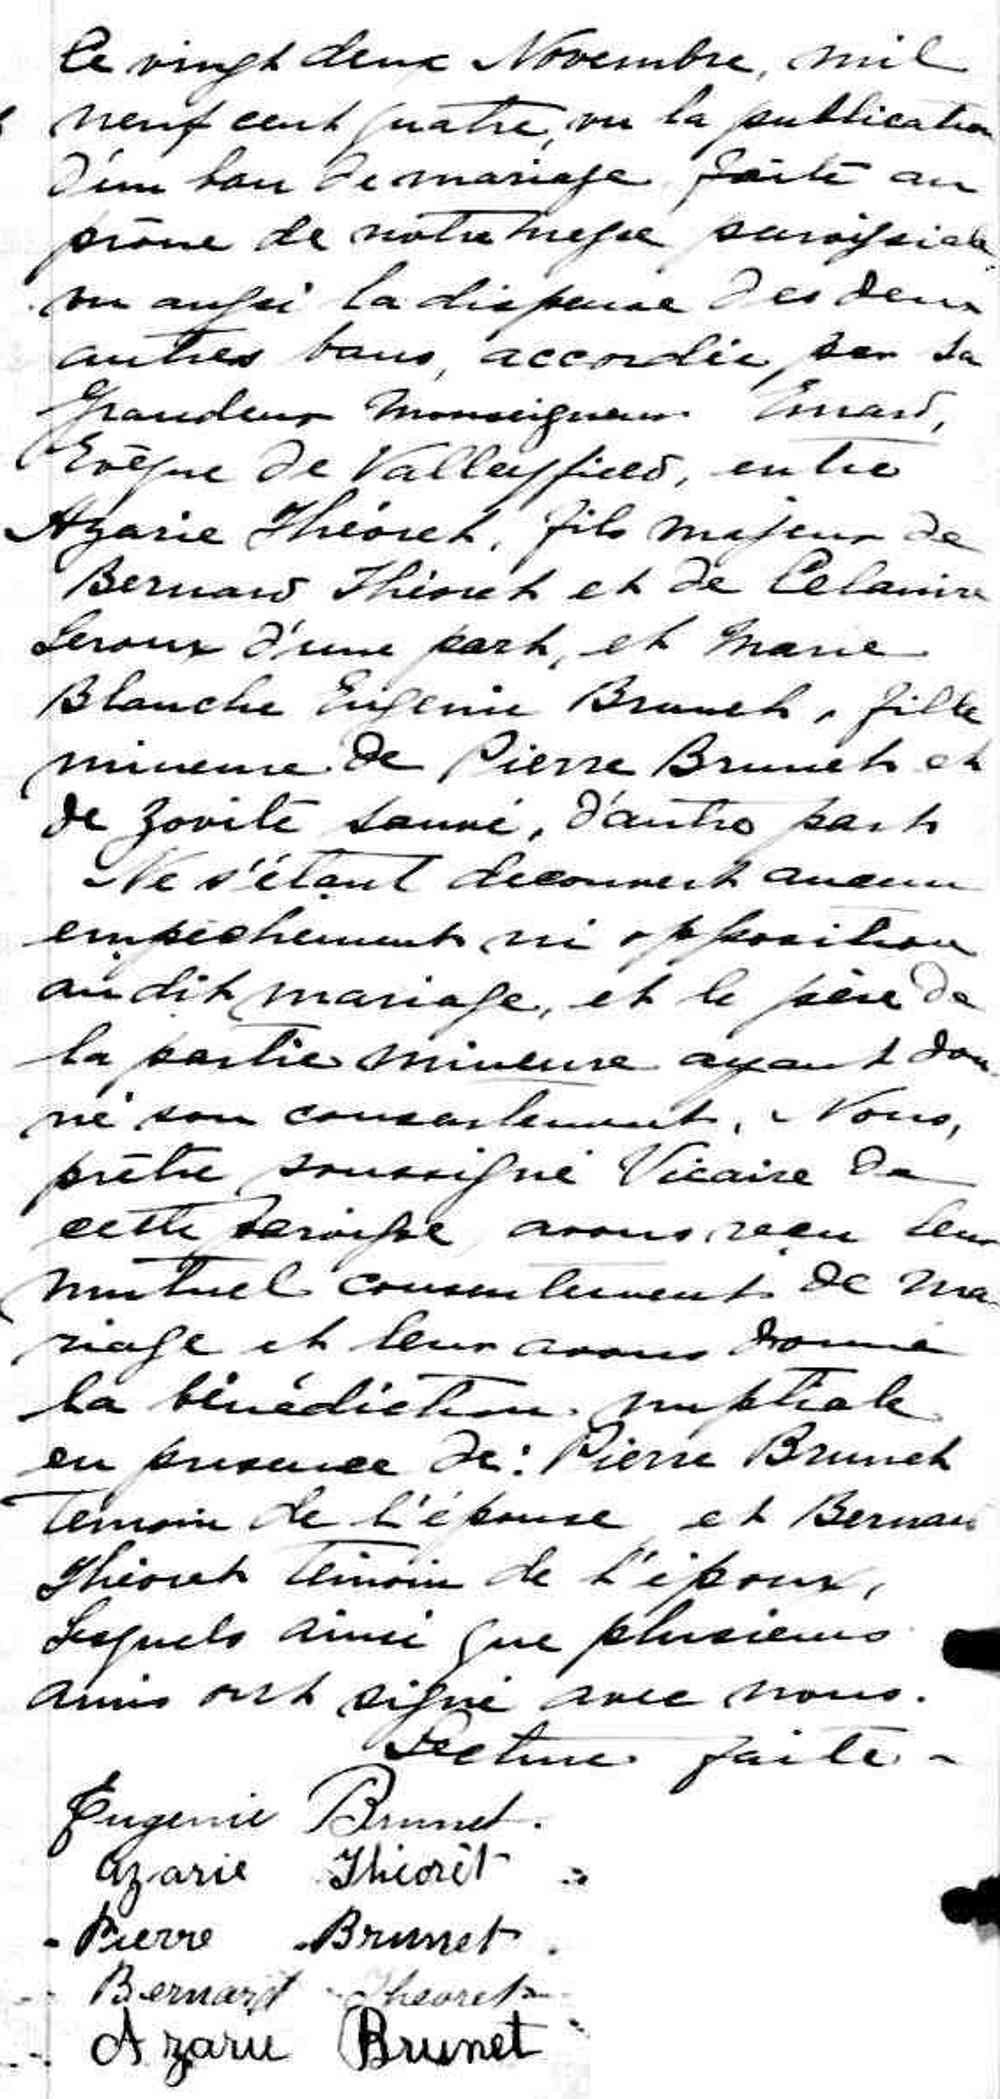 Ce vingt deux Novembre, mil
neuf cent quatre, vu la publication
d'un ban de mariage faite au
prône de notre messe paroissiale,
vu aussi la dispense des deux
autres bans, accordée par Sa
Grandeur Monseigneur Emard,
Evêque de Valleyfield, entre
Azarie Théoret, fils majeur de
Bernard Théoret et de Celanire
Leroux d'une part, et Marie
Blanche Eugenie Brunet, fille
mineure de Pierre Brunet et
de Zoé Sauvé, d'autre part
Ne s'étant decouvert aucun
empêchement ni opposition
au dit mariage, et le père de
la partie mineure ayant don-
né son consentement, Nous,
prêtre soussigné Vicaire de
cette paroisse avons reçu leur
mutuel consentement de ma-
riage et leur avons donné
la bénédiction nuptiale
en presence de: Pierre Brunet
temoin de l'épouse et Bernard
Théoret témoin de l'époux,
Lesquels ainsi que plusieurs
amis ont signé avec nous.
Lecture faite -
Eugenie Brunet.
Azarie Théorêt
Pierre Brunet.
Bernard Theoret
Azarie Brunet